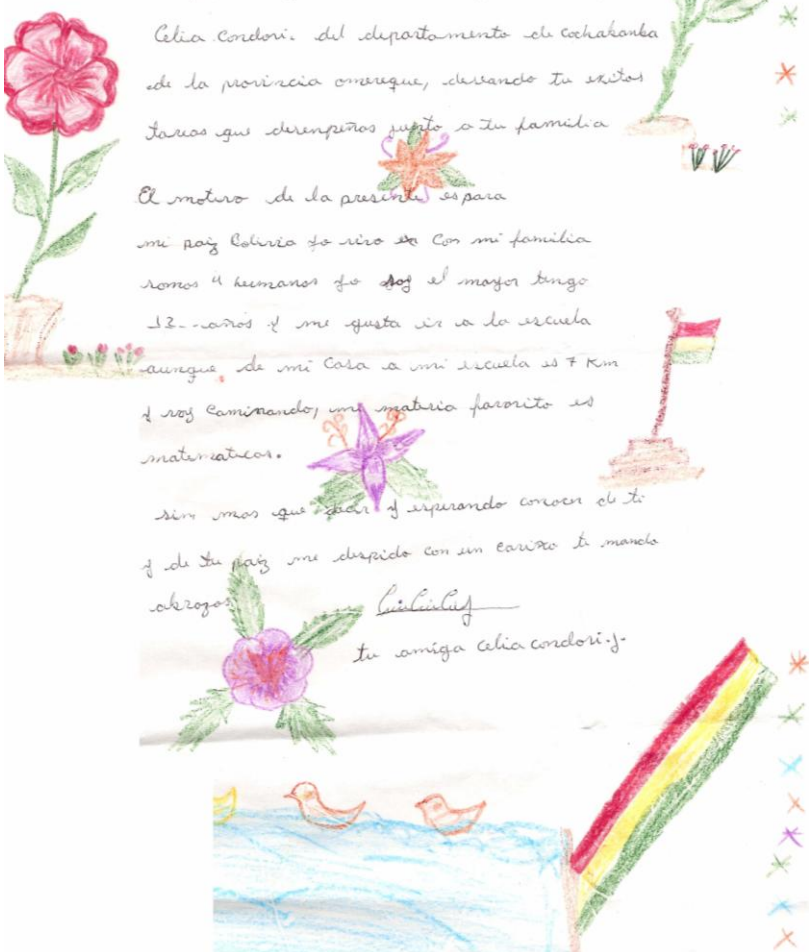 Celia Condori. del departamento de cochabanba
de la provincia omereque, deseando tu exitos
tareas que desenpeñas junto a tu familia
El motivo de la presente es para
mi paiz Bolivia yo vivo en con mi familia
somos 4 hermanos yo soy el mayor tengo
13 años y me gusta ir a la escuela
aunque de mi casa a mi escuela es 7 Km
y voy caminando, mi materia favorito es
matematicas.
sin mas que decir y esperando conocer de ti
y de tu paiz me despido con un carixo ti mando
abrazos
tu amiga celia condori.J.